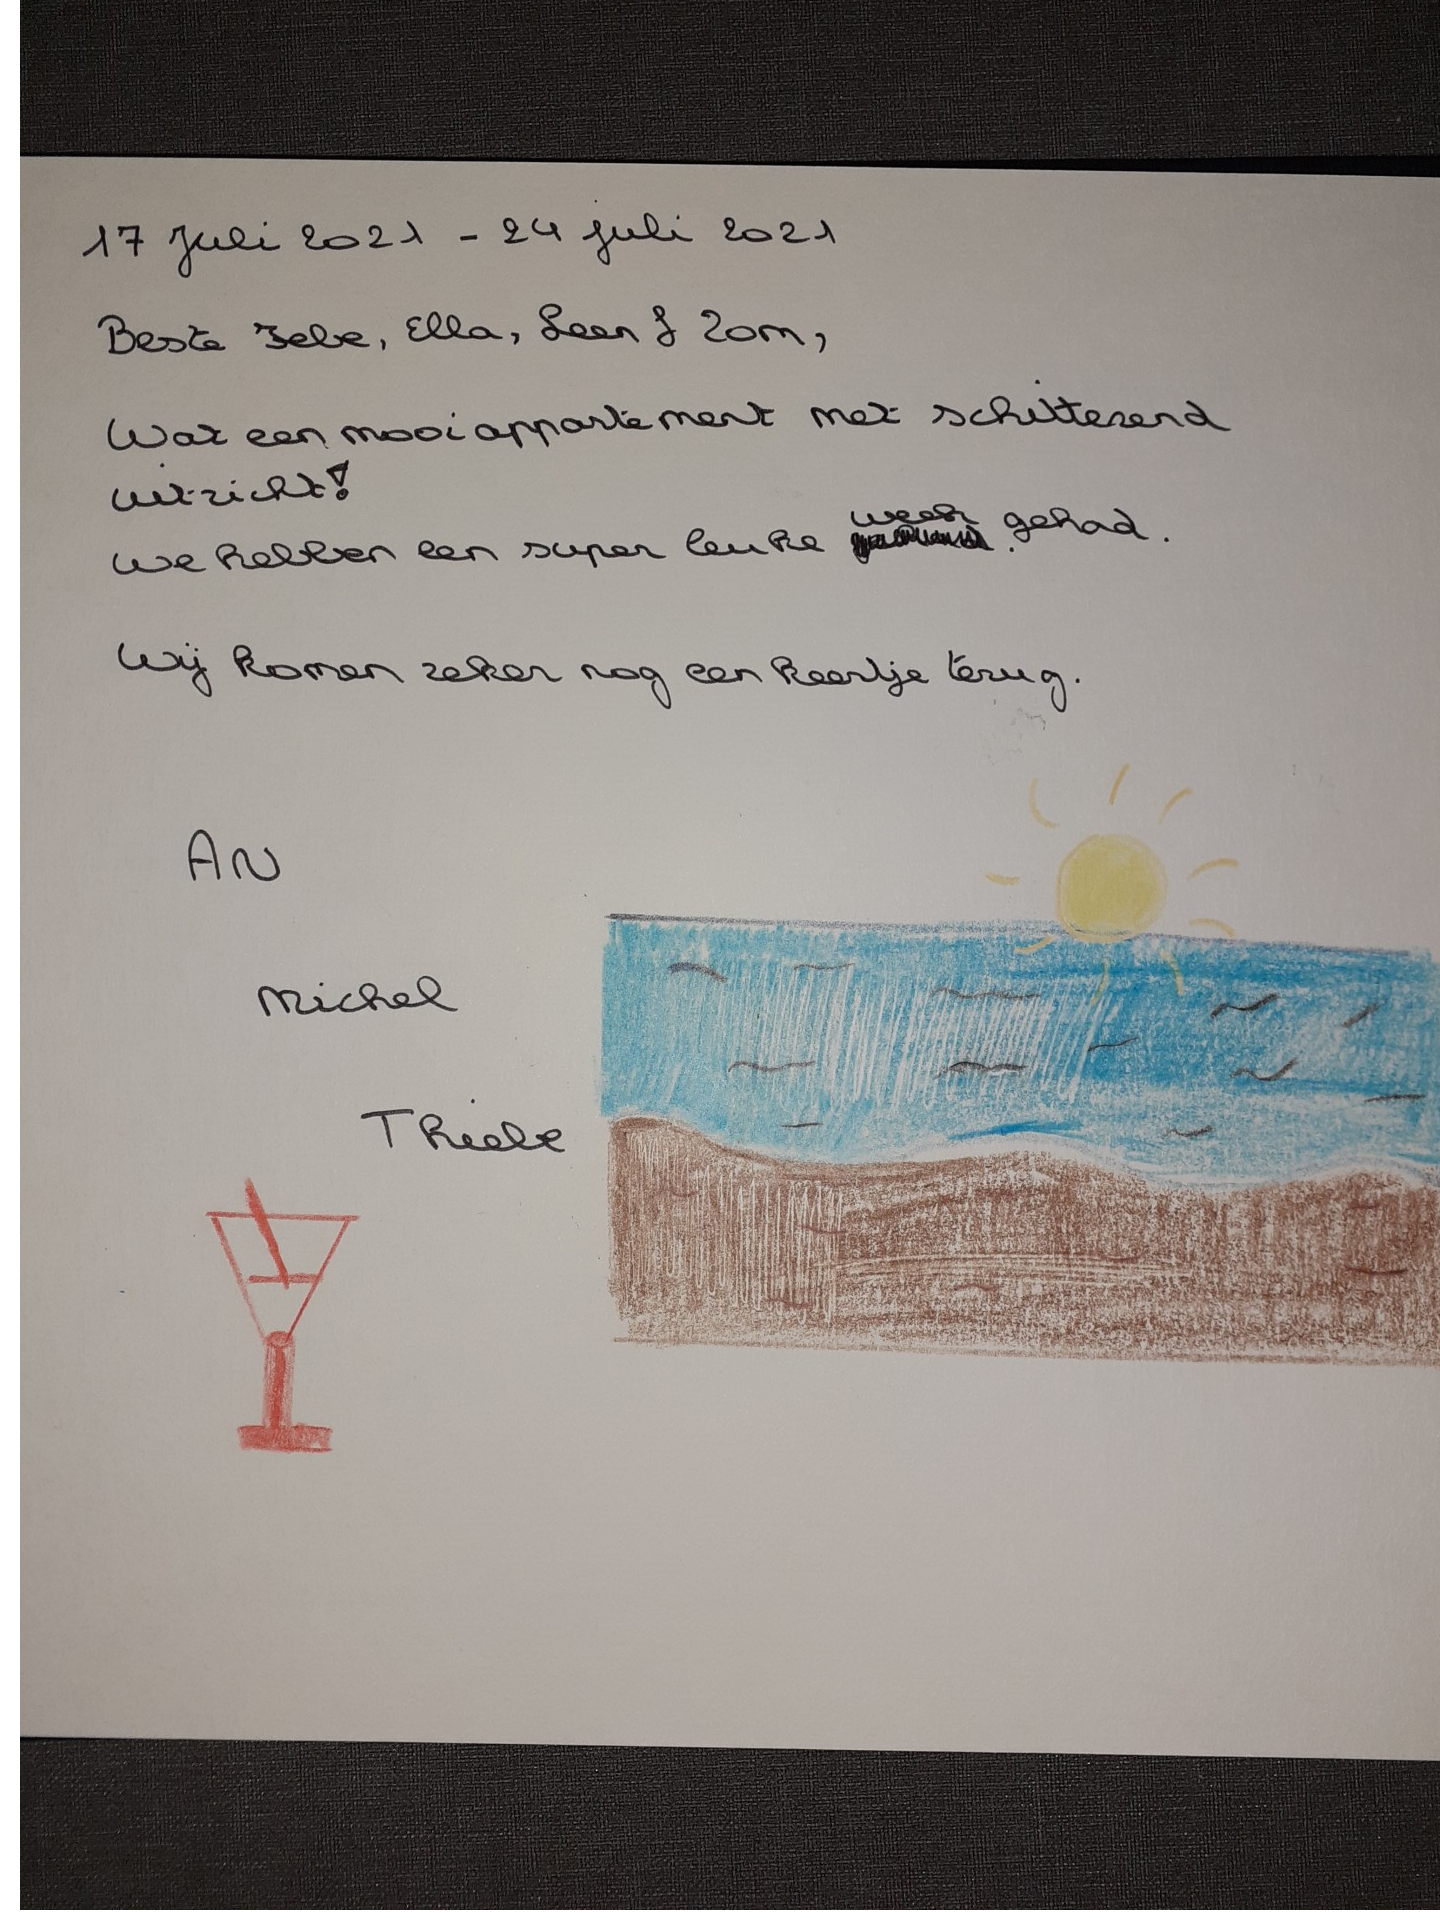 17 Juli 2021 - 24 juli 2021
Beste Ella, Leen & Tom,
Wat een mooi appartement met schitterend
uitzicht!
We hebben een super leuke week gehad.
Wij komen zeker nog een keertje terug.
AN
Michel
Thiebe